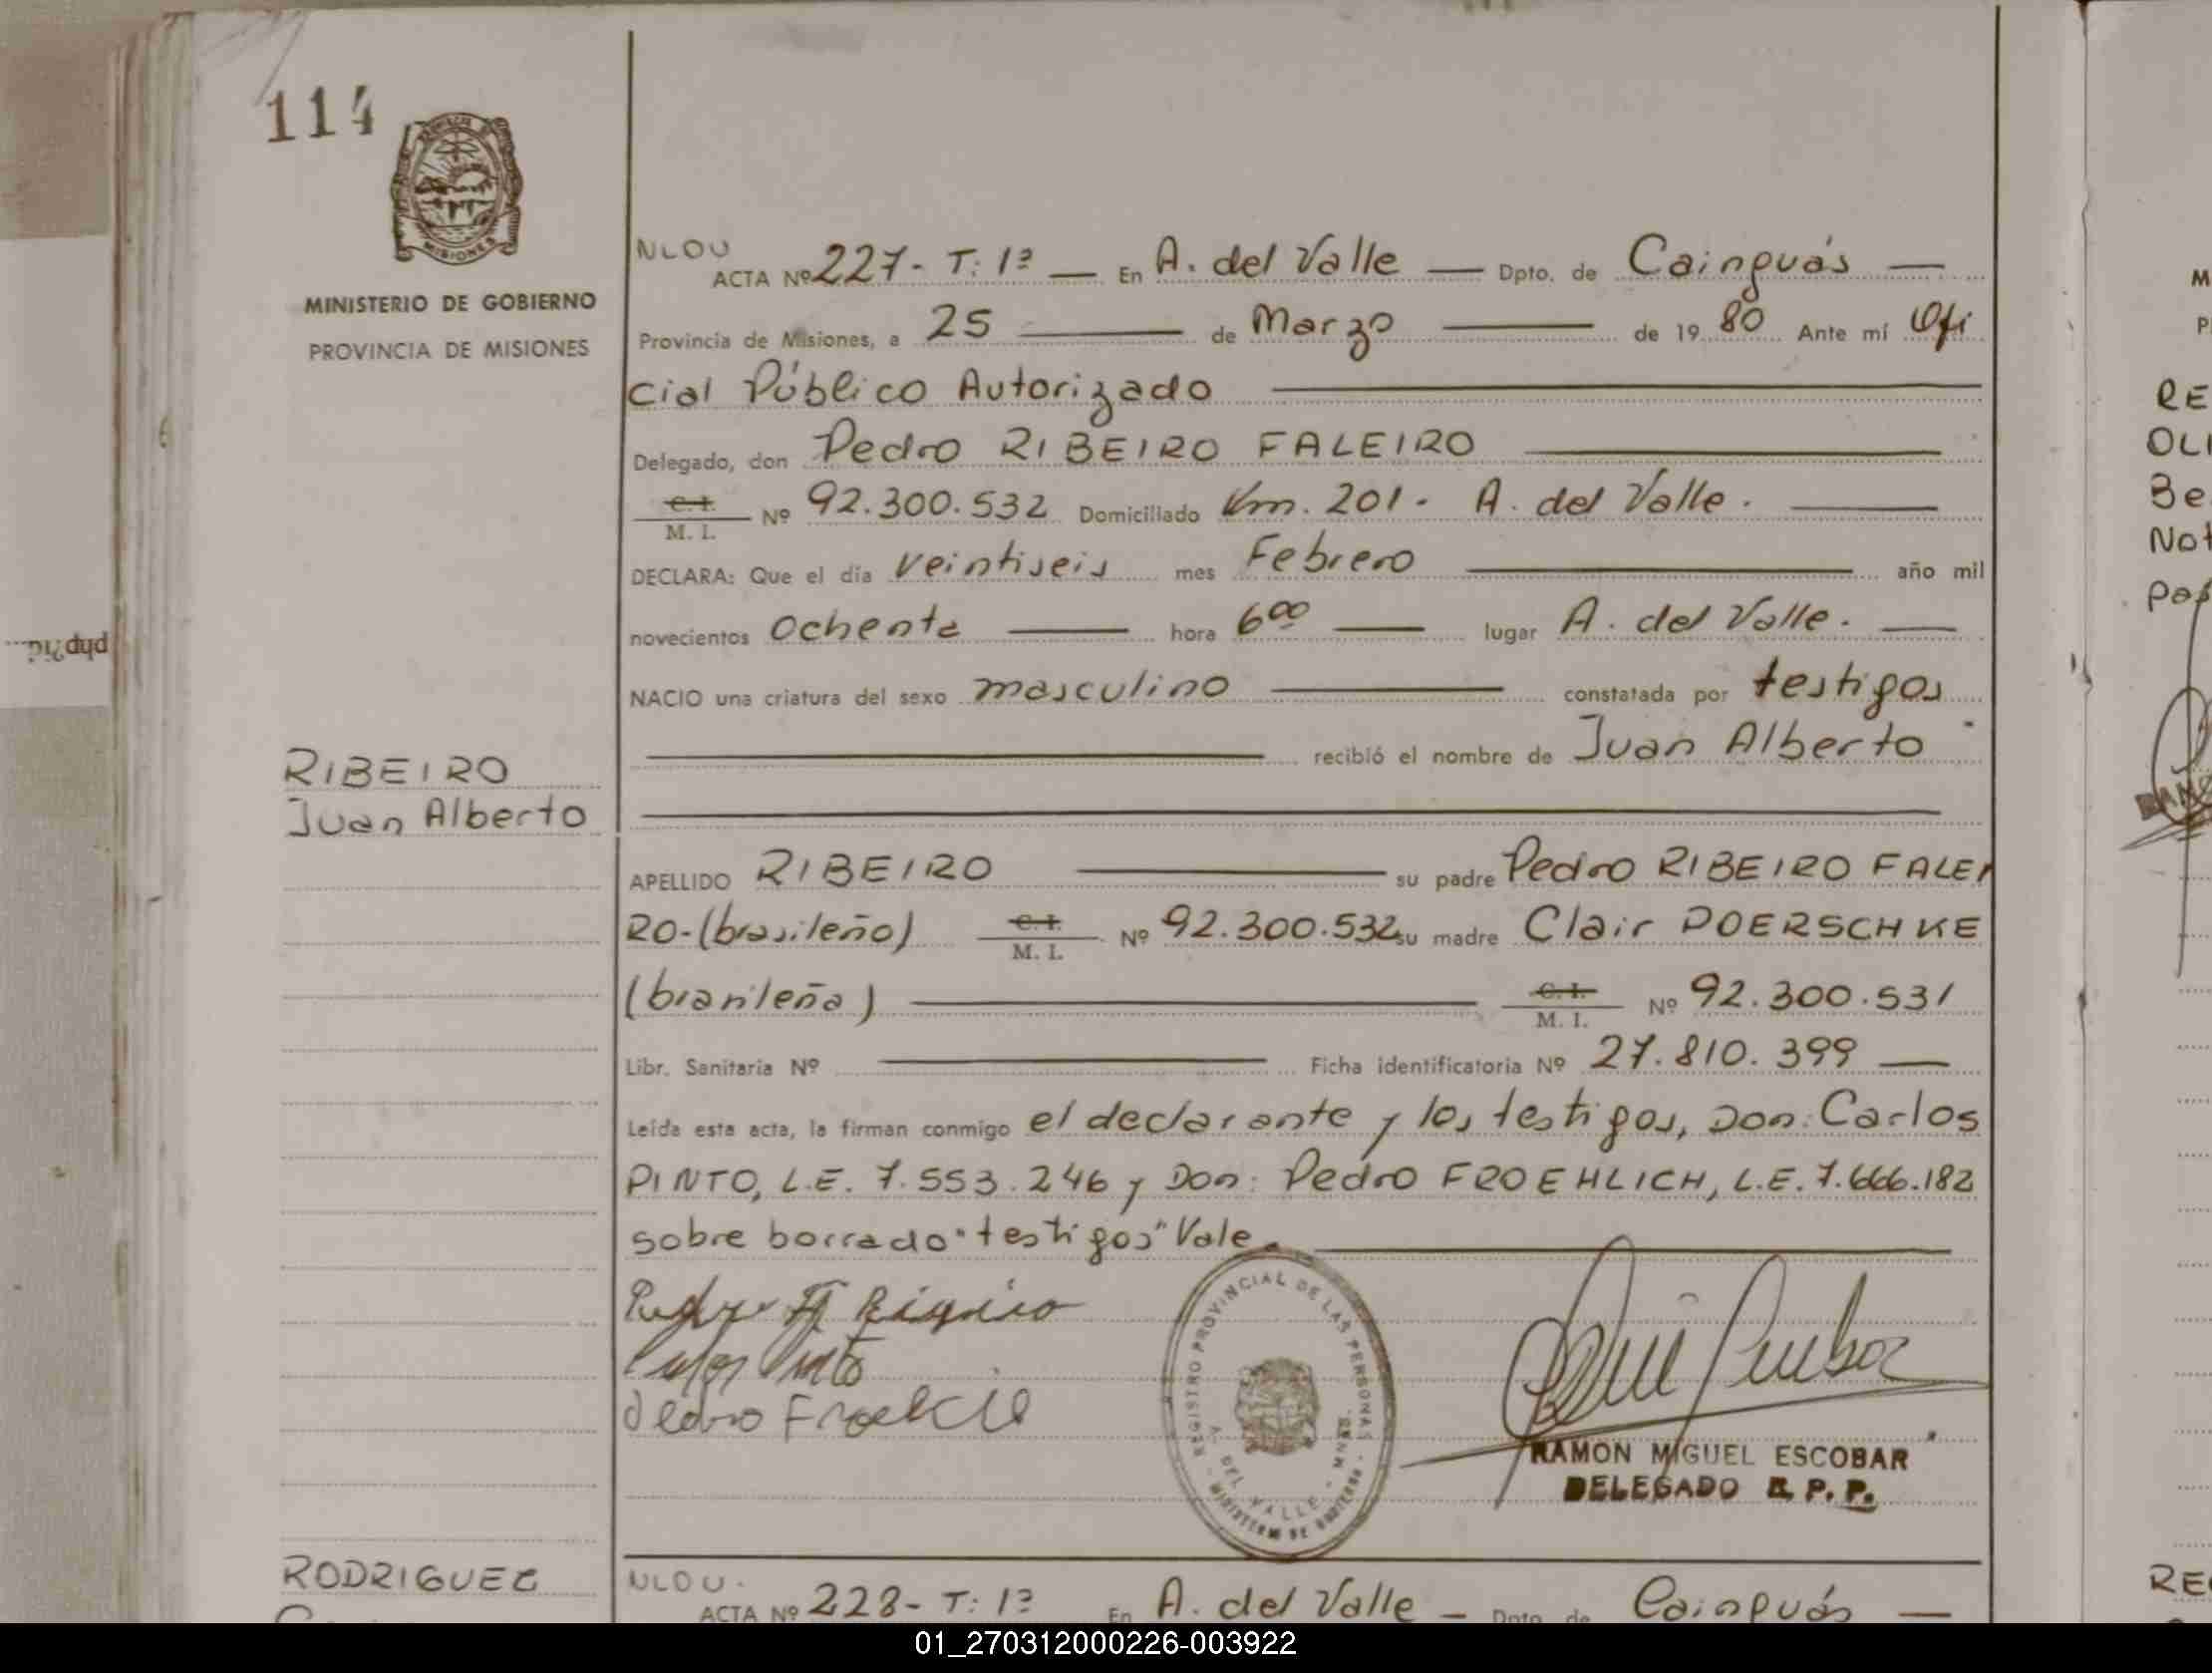 114
MISIONES
MINISTERIO DE GOBIERNO
PROVINCIA DE MISIONES
RIBEIRO
Juan Alberto
NLOU
ACTA Nº 227- T: 1ª — En A. del Valle — Dpto. de Cainguás —
Provincia de Misiones, a 25 — de Marzo — de 19 80 Ante mí Ofi
cial Público Autorizado
Delegado, don Pedro RIBEIRO FALEIRO
C.I.
M. I. Nº 92.300.532 Domiciliado Km. 201- A. del Valle.
DECLARA: Que el día veintiseis mes Febrero — año mil
novecientos ochenta — hora 6⁰⁰ — lugar A. del Valle. —
NACIO una criatura del sexo masculino — constatada por testigos
— recibió el nombre de Juan Alberto
APELLIDO RIBEIRO — su padre Pedro RIBEIRO FALEI
RO-(brasileño) C.I.
M. I. Nº 92.300.532 su madre Clair DOERSCHKE
(brasileña) — C. I.
M. I. Nº 92.300.531
Libr. Sanitaria Nº — Ficha identificatoria Nº 27.810.399 —
Leída esta acta, la firman conmigo el declarante y los testigos, Don: Carlos
PINTO, L.E. 7.553.246 y Don: Pedro FROEHLICH, L.E. 7.666.182
sobre borrado "testigos" Vale.
REGISTRO PROVINCIAL DE LAS PERSONAS
A. DEL VALLE - MNES.
MINISTERIO DE GOBIERNO
RAMON MIGUEL ESCOBAR
DELEGADO R. P. P.
RODRIGUEZ
NLOU.
ACTA Nº 228- T: 1ª En A. del Valle — Dpto de Cainguás —
RE
OLI
Be
Not
01_270312000226-003922